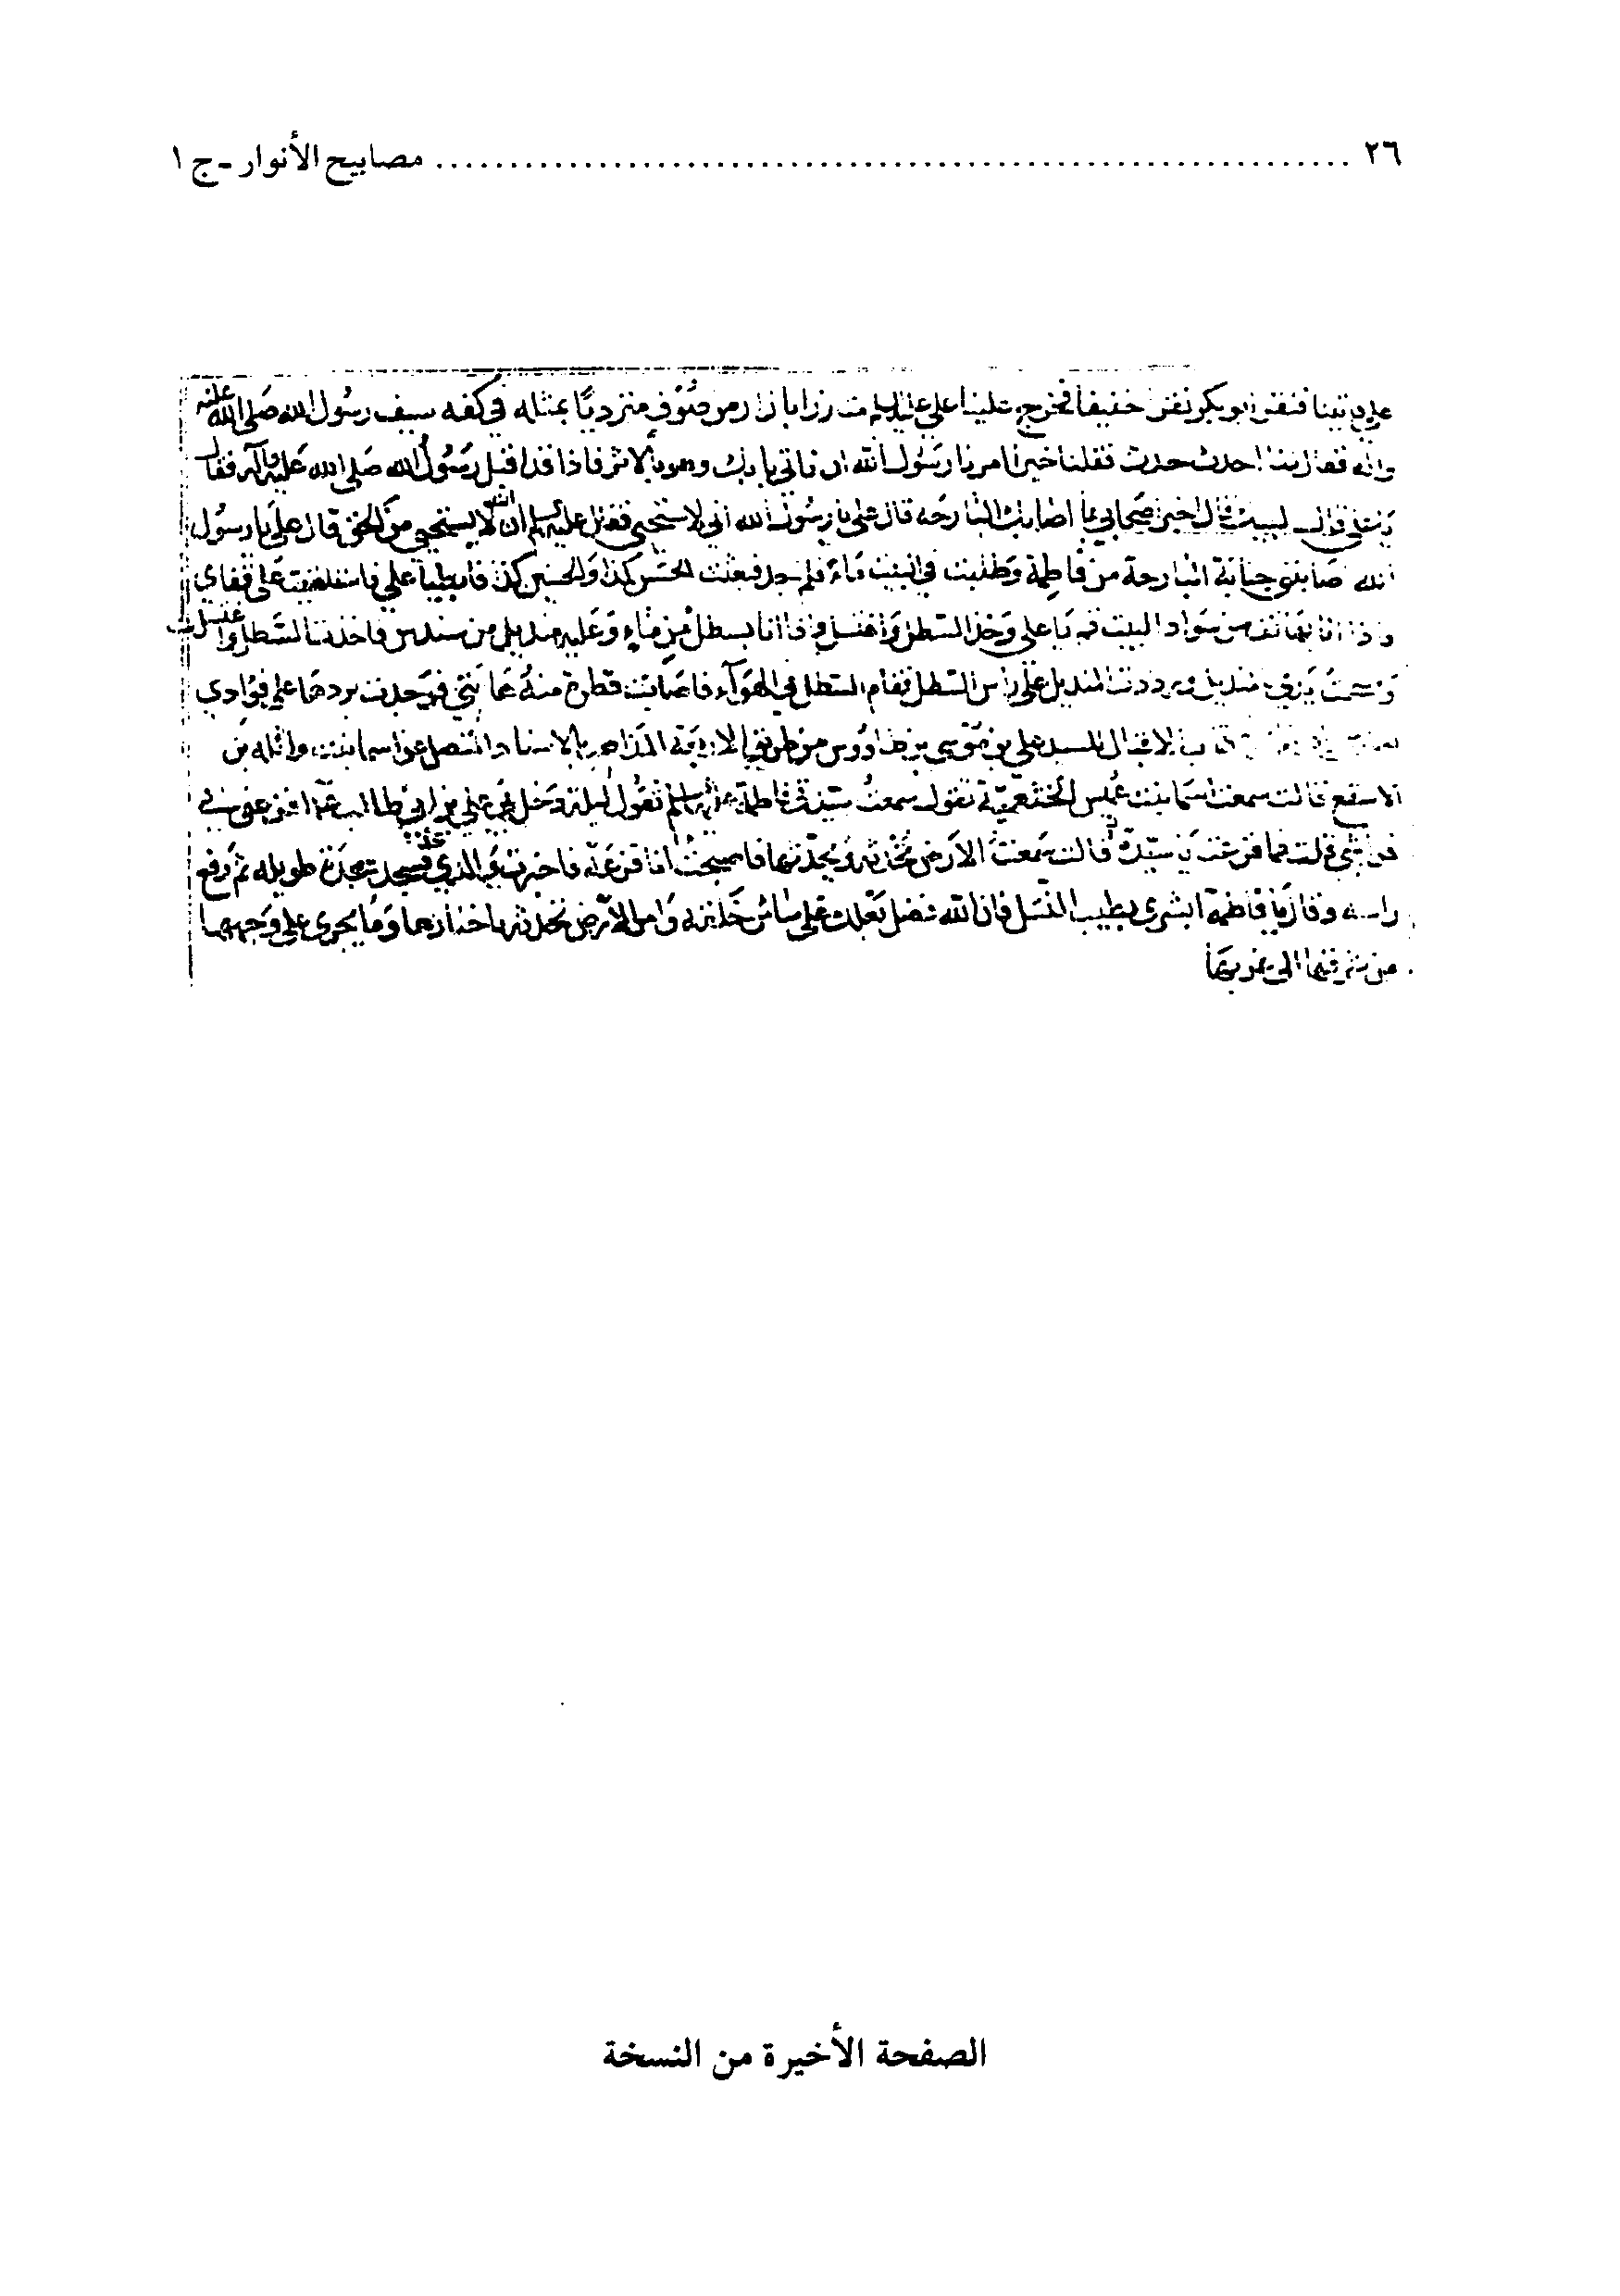 ٢٦ ........ مصابيح الأنوار - ج ١
علي بيننا فنقر ابو بكر نقرا خفيفا فخرج علينا علي متزرا بازار من صوف مترديا بمثله في كفه سيف رسول الله صلى الله عليه
واله فقال لنا احدث حدث فقلنا خير امرنا رسول الله ان ناتي بابك وهو بالاثر فاذا قد اقبل رسول الله صلى الله عليه وآله فقال
يا علي قال لبيك قال اخبر اصحابي بما اصابك البارحة قال علي يا رسول الله اني لاستحيي فقال ان الله لا يستحيي من الحق قال علي يا رسول
الله اصابتني جنابة البارحة من فاطمة وطلبت في البيت ماء فلم اجد فبعثت الحسن كذا والحسين كذا فابطيا علي فاستلقيت على قفاي
واذا انا بهاتف من سواد البيت قم يا علي وخذ السطل واغتسل فاذا انا بسطل من ماء وعليه منديل من سندس فاخذت السطل واغتسلت
ومسحت بدني بالمنديل ورددت المنديل على راس السطل فقام السطل في الهواء فاصابت قطرة منه هامتي فوجدت بردها على فؤادي
كتاب الاقبال للسيد علي بن موسى بن طاووس من طريق الاربعة المذاهب بالاسناد المتصل عن اسما بنت واثله بن
الاسقع قالت سمعت اسما بنت عميس الخثعمية تقول سمعت سيدتي فاطمة عليها السلم تقول ليلة دخل بي علي بن ابي طالب افزعني في
فراشي قلت بما فزعت يا سيدة قالت سمعت الارض تحدثه ويحدثها فاصبحت انا فزعة فاخبرت والدي فسجد سجدة طويله ثم رفع
راسه وقال يا فاطمة ابشري بطيب النسل فان الله فضل بعلك على سائر خلقه وامر الارض تحدثه باخبارها وما يجري على وجهها
من شرقها الى غربها
الصفحة الأخيرة من النسخة